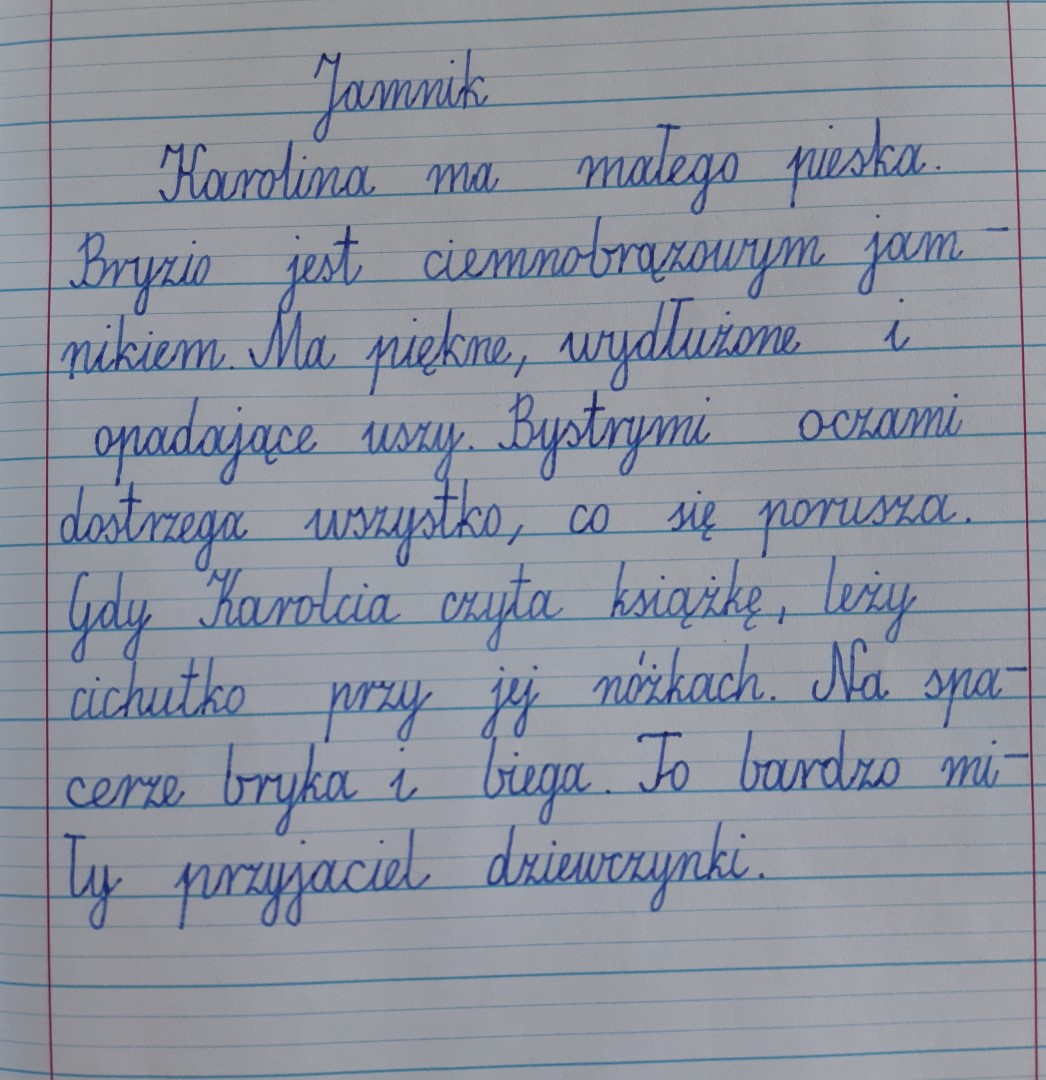 Jamnik
Karolina ma małego pieska.
Bryzio jest ciemnobrązowym jam-
nikiem. Ma piękne, wydłużone i
opadające uszy. Bystrymi oczami
dostrzega wszystko, co się porusza.
Gdy Karolcia czyta książkę, leży
cichutko przy jej nóżkach. Na spa-
cerze bryka i biega. To bardzo mi-
ły przyjaciel dziewczynki.